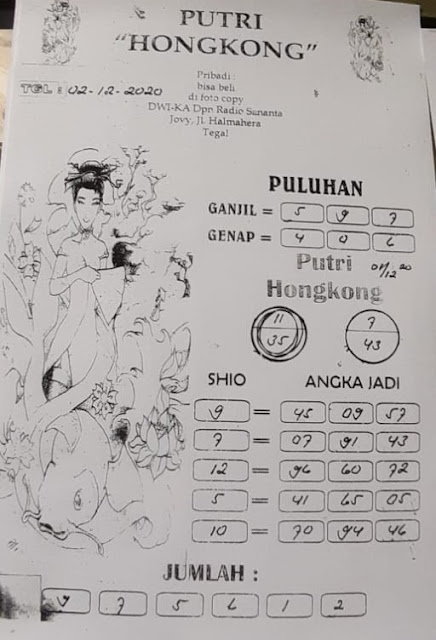 PUTRI
"HONGKONG"
Pribadi :
bisa beli
di foto copy
DWI-KA Dpn Radio Sananta
Jovy, Jl. Halmahera
Tegal
TGL : 02-12-2020
PULUHAN
GANJIL = 5 9 7
GENAP = 4 0 6
Putri
Hongkong
01/12 20
11 7
35 43
SHIO ANGKA JADI
9 = 45 09 57
7 = 07 91 43
12 = 96 60 72
5 = 41 65 05
10 = 70 94 46
JUMLAH :
9 7 5 6 1 2